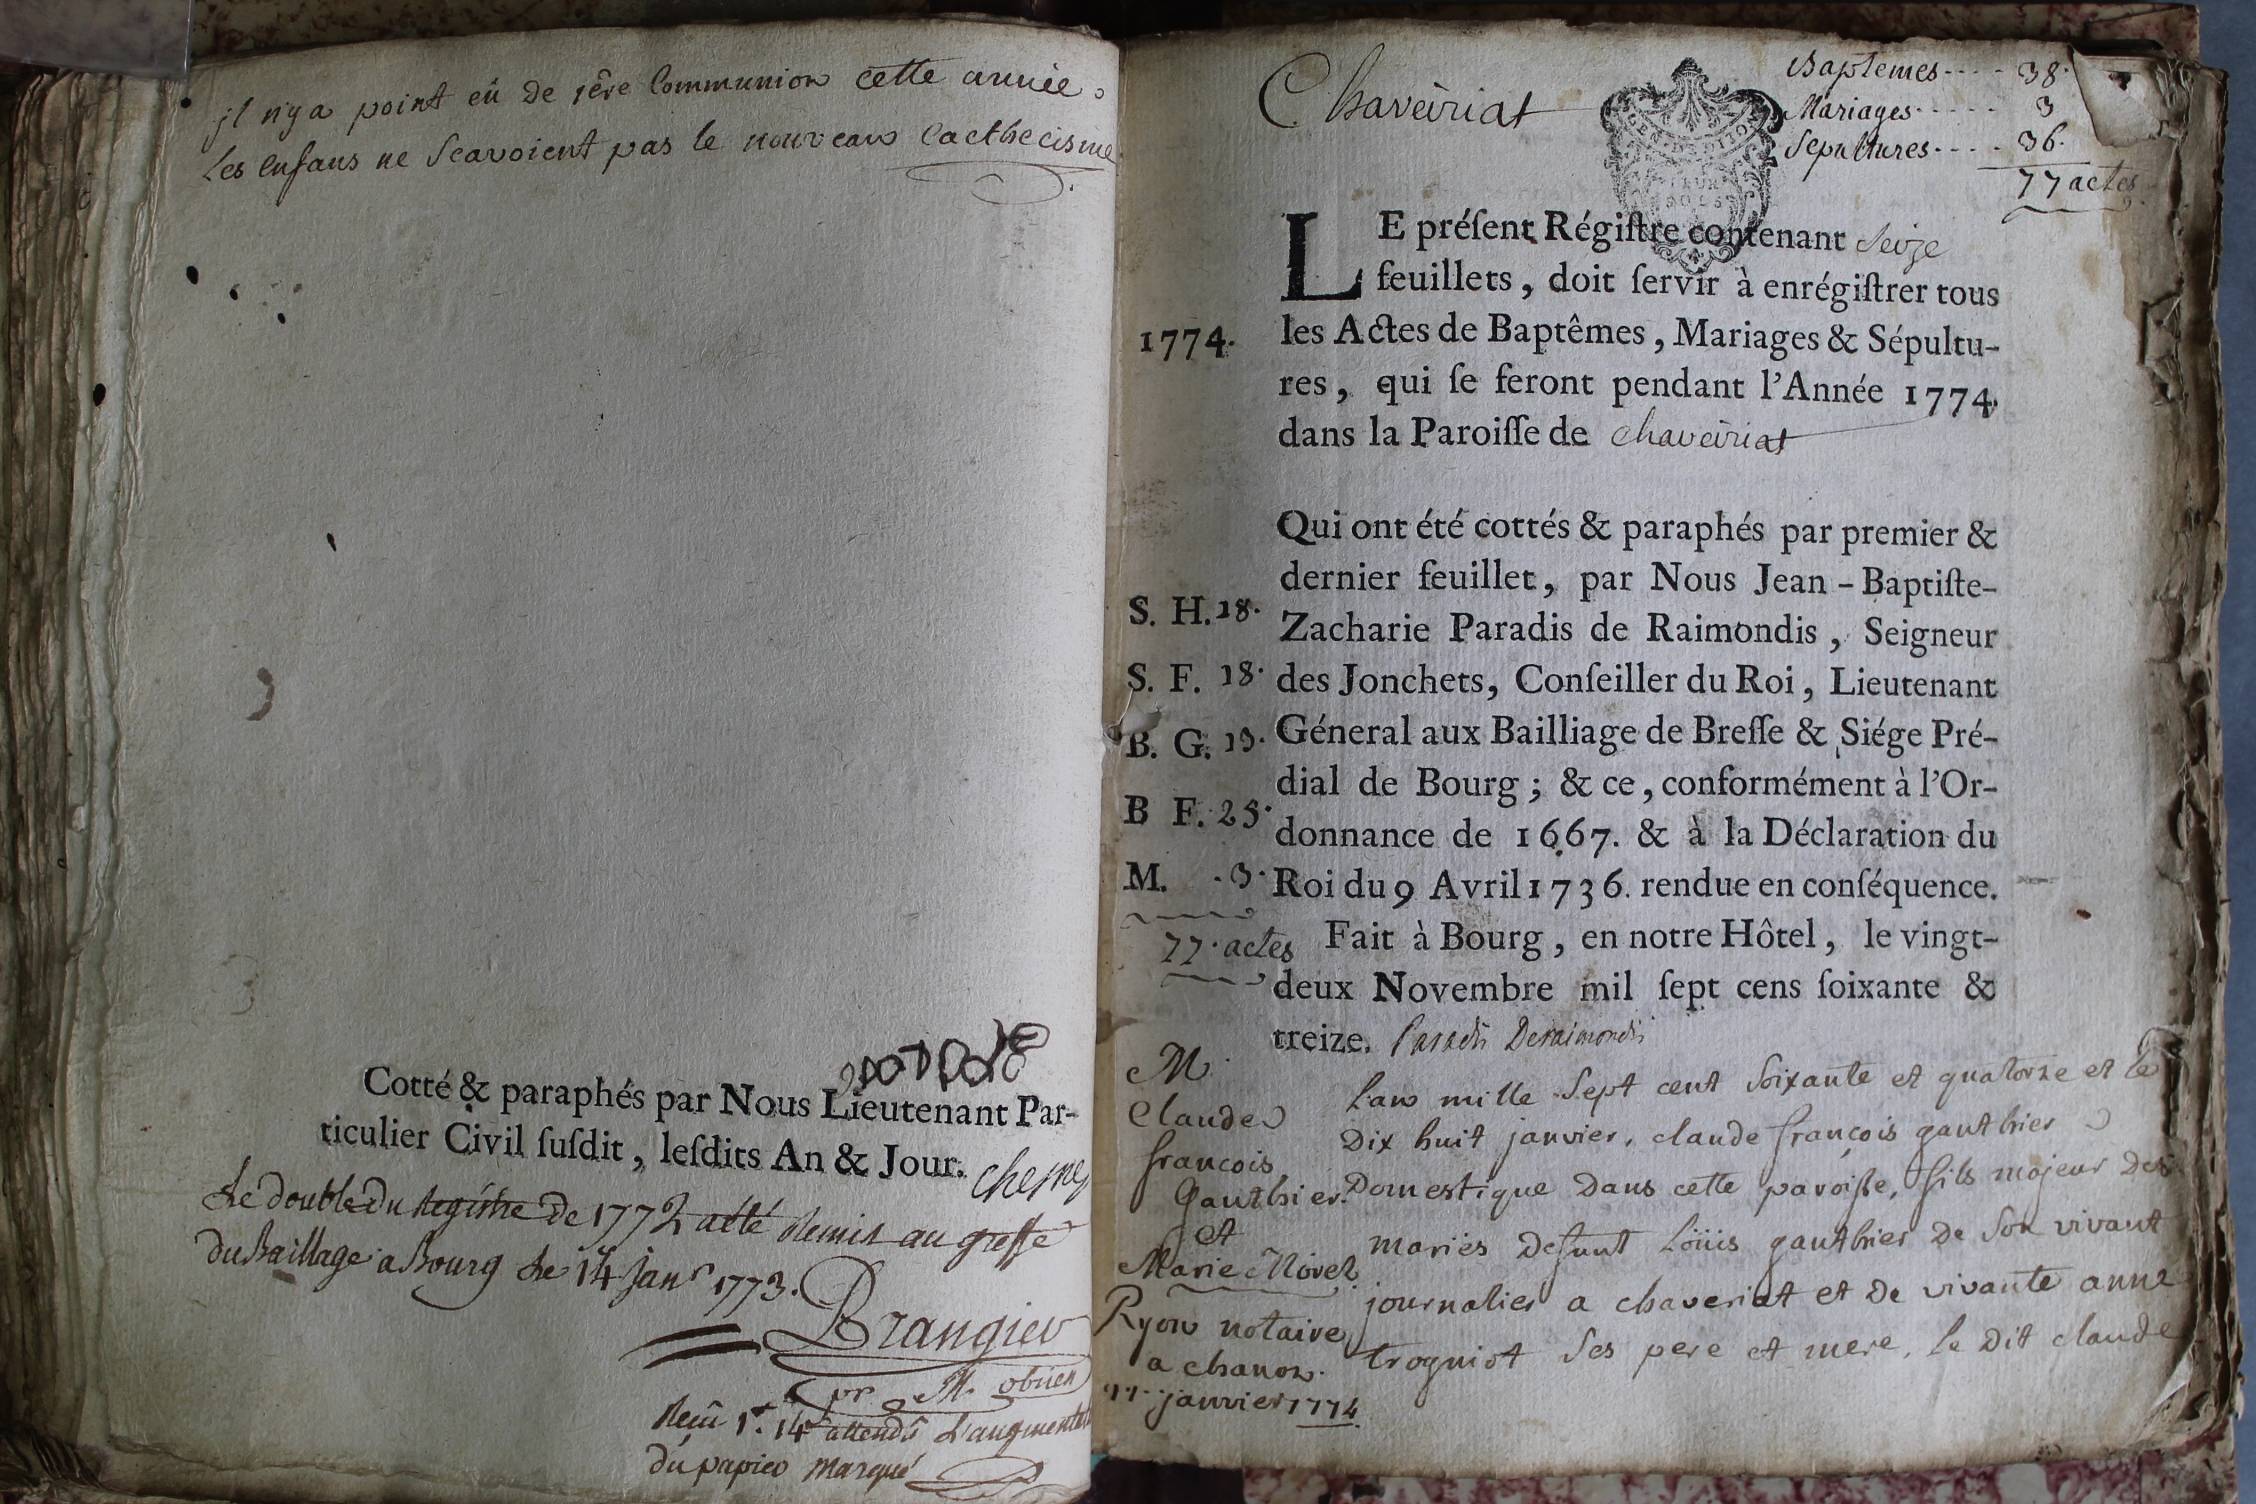 jl n'y a point eû de 1ère Communion cette année.
Les enfans ne Scavoient pas le nouveau Cacthecisme
Cotté & paraphés par Nous Lieutenant Par-
ticulier Civil ſuſdit, leſdits An & Jour.
Le double du Registre de 1772 a été Remis au greffe
du Baillage a Bourg Le 14 janr 1773.
Brangier
pr M. obrien
Reçû 1ᵗ. 14ˢ attendû L'augmentat
du papier marqué
Chaveiriat
Baptemes 38.
Mariages 3
Sepultures 36.
77 actes
LE préſent Régiſtre contenant Seize
feuillets, doit ſervir à enrégiſtrer tous
1774.
les Actes de Baptêmes, Mariages & Sépultu-
res, qui ſe feront pendant l'Année 1774.
dans la Paroiſſe de chaveiriat
Qui ont été cottés & paraphés par premier &
dernier feuillet, par Nous Jean-Baptiſte-
S. H. 18.
Zacharie Paradis de Raimondis, Seigneur
S. F. 18.
des Jonchets, Conſeiller du Roi, Lieutenant
B. G. 13.
Géneral aux Bailliage de Breſſe & Siége Pré-
dial de Bourg; & ce, conformément à l'Or-
B F. 25.
donnance de 1667. & à la Déclaration du
M. 3.
Roi du 9 Avril 1736. rendue en conſéquence.
77. actes
Fait à Bourg, en notre Hôtel, le vingt-
deux Novembre mil ſept cens ſoixante &
treize. Paradis Deraimondis
M.
Claude
francois
Gauthier
et
Marie Novel
Ryon notaire
a chanoz.
janvier 1774
Lan mille Sept cent Soixante et quatorze et le
Dix huit janvier, claude françois gauthier
Domestique Dans cette paroisse, fils majeur Des
mariés Defunt Loüis gauthier De Son vivant
journalier a chaveriat et De vivante anne
trogniot Ses pere et mere, le Dit claude